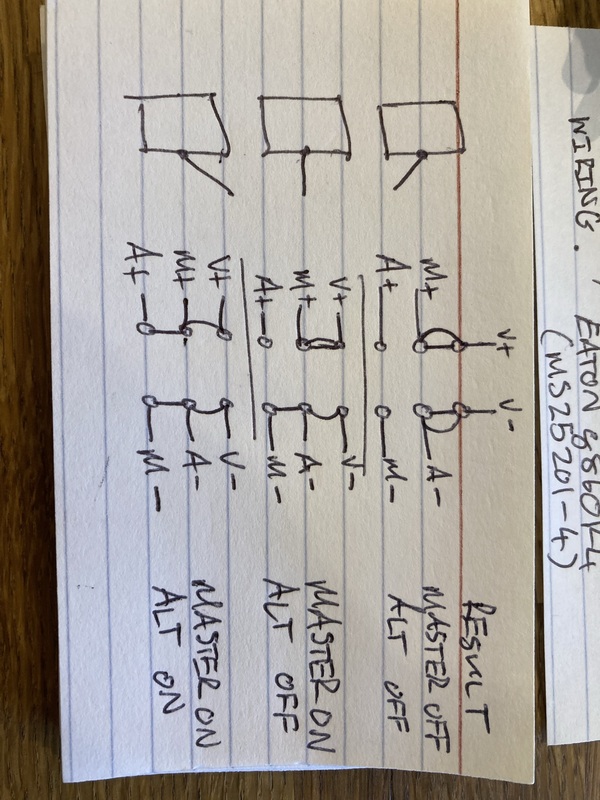 WIRING. EATON 8860K4
(MS25201-4)
V+ V- RESULT
M+ A- MASTER OFF
A+ M- ALT OFF
V+ V-
M+ A- MASTER ON
A+ M- ALT OFF
V+ V-
M+ A- MASTER ON
A+ M- ALT ON